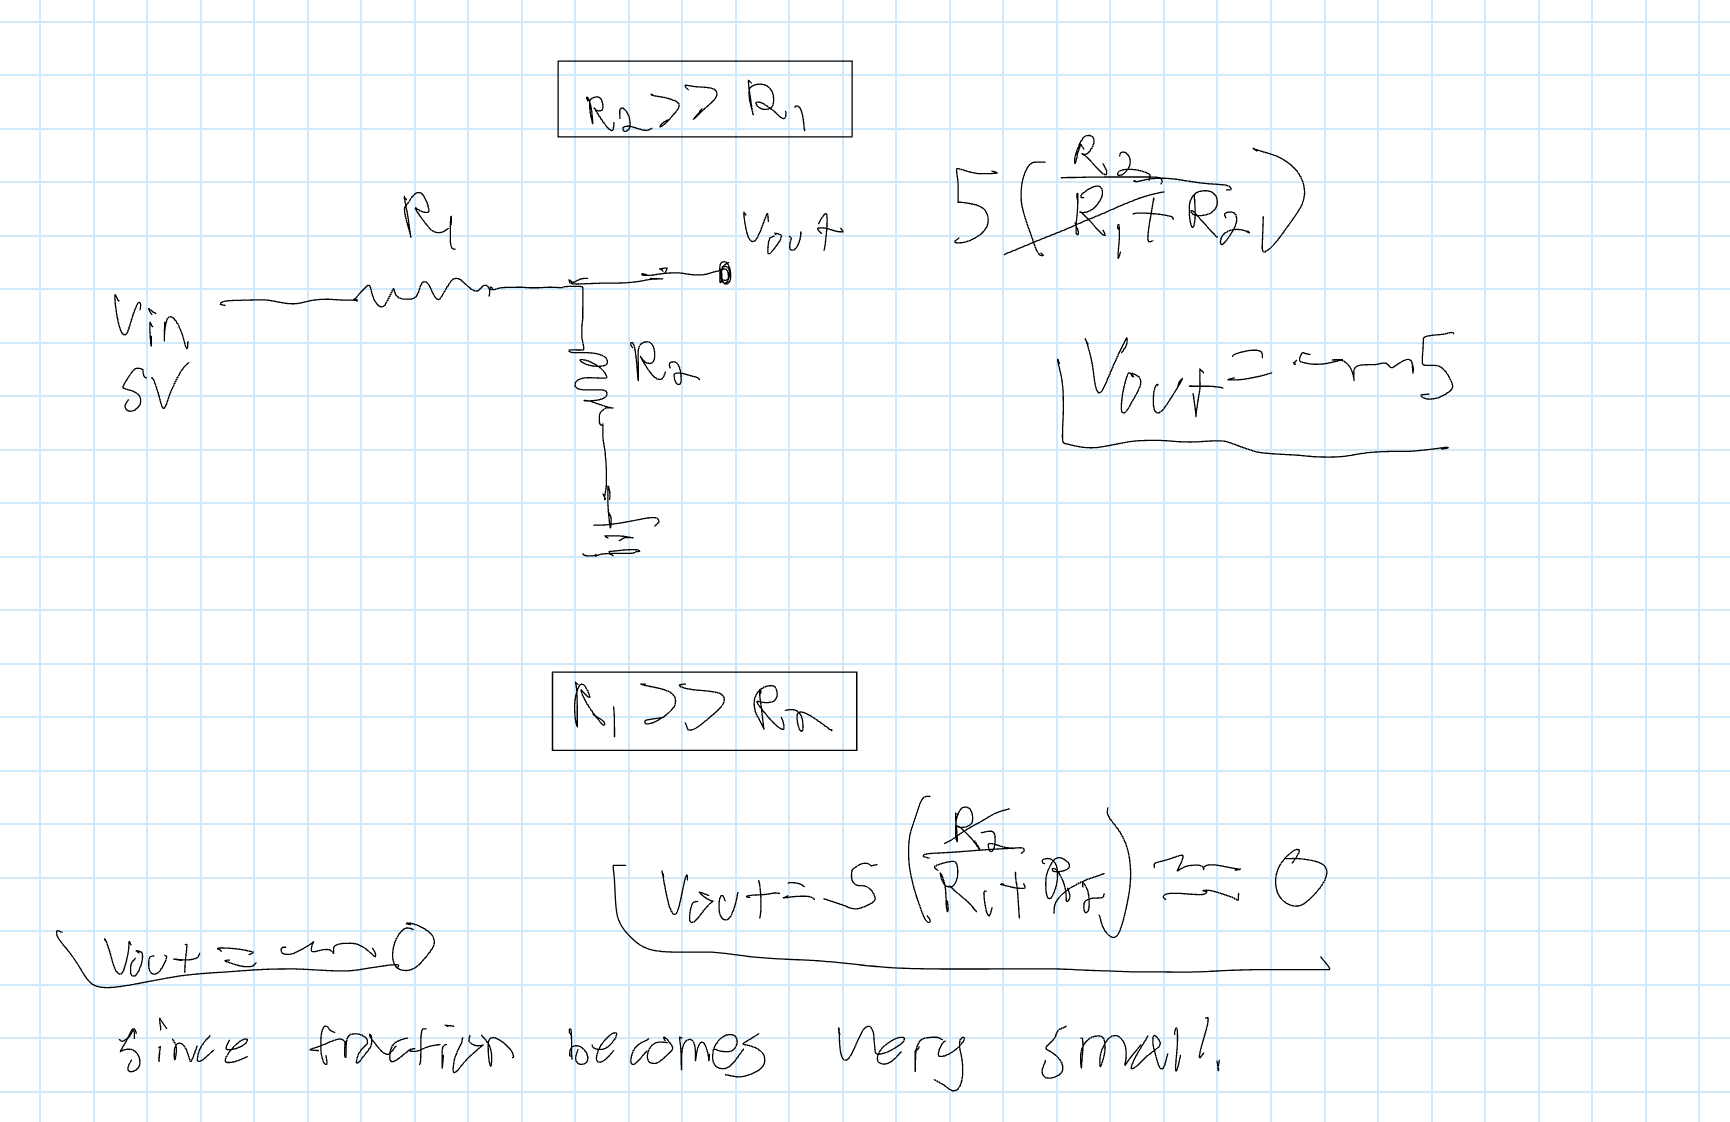 R2 >> R1
R1
Vout
5 (R2 / (R1 + R2))
Vin
5V
R2
Vout = ~5
R1 >> R2
Vout = 5 (R2 / (R1 + R2)) ≈ 0
Vout = ~0
since fraction becomes very small.